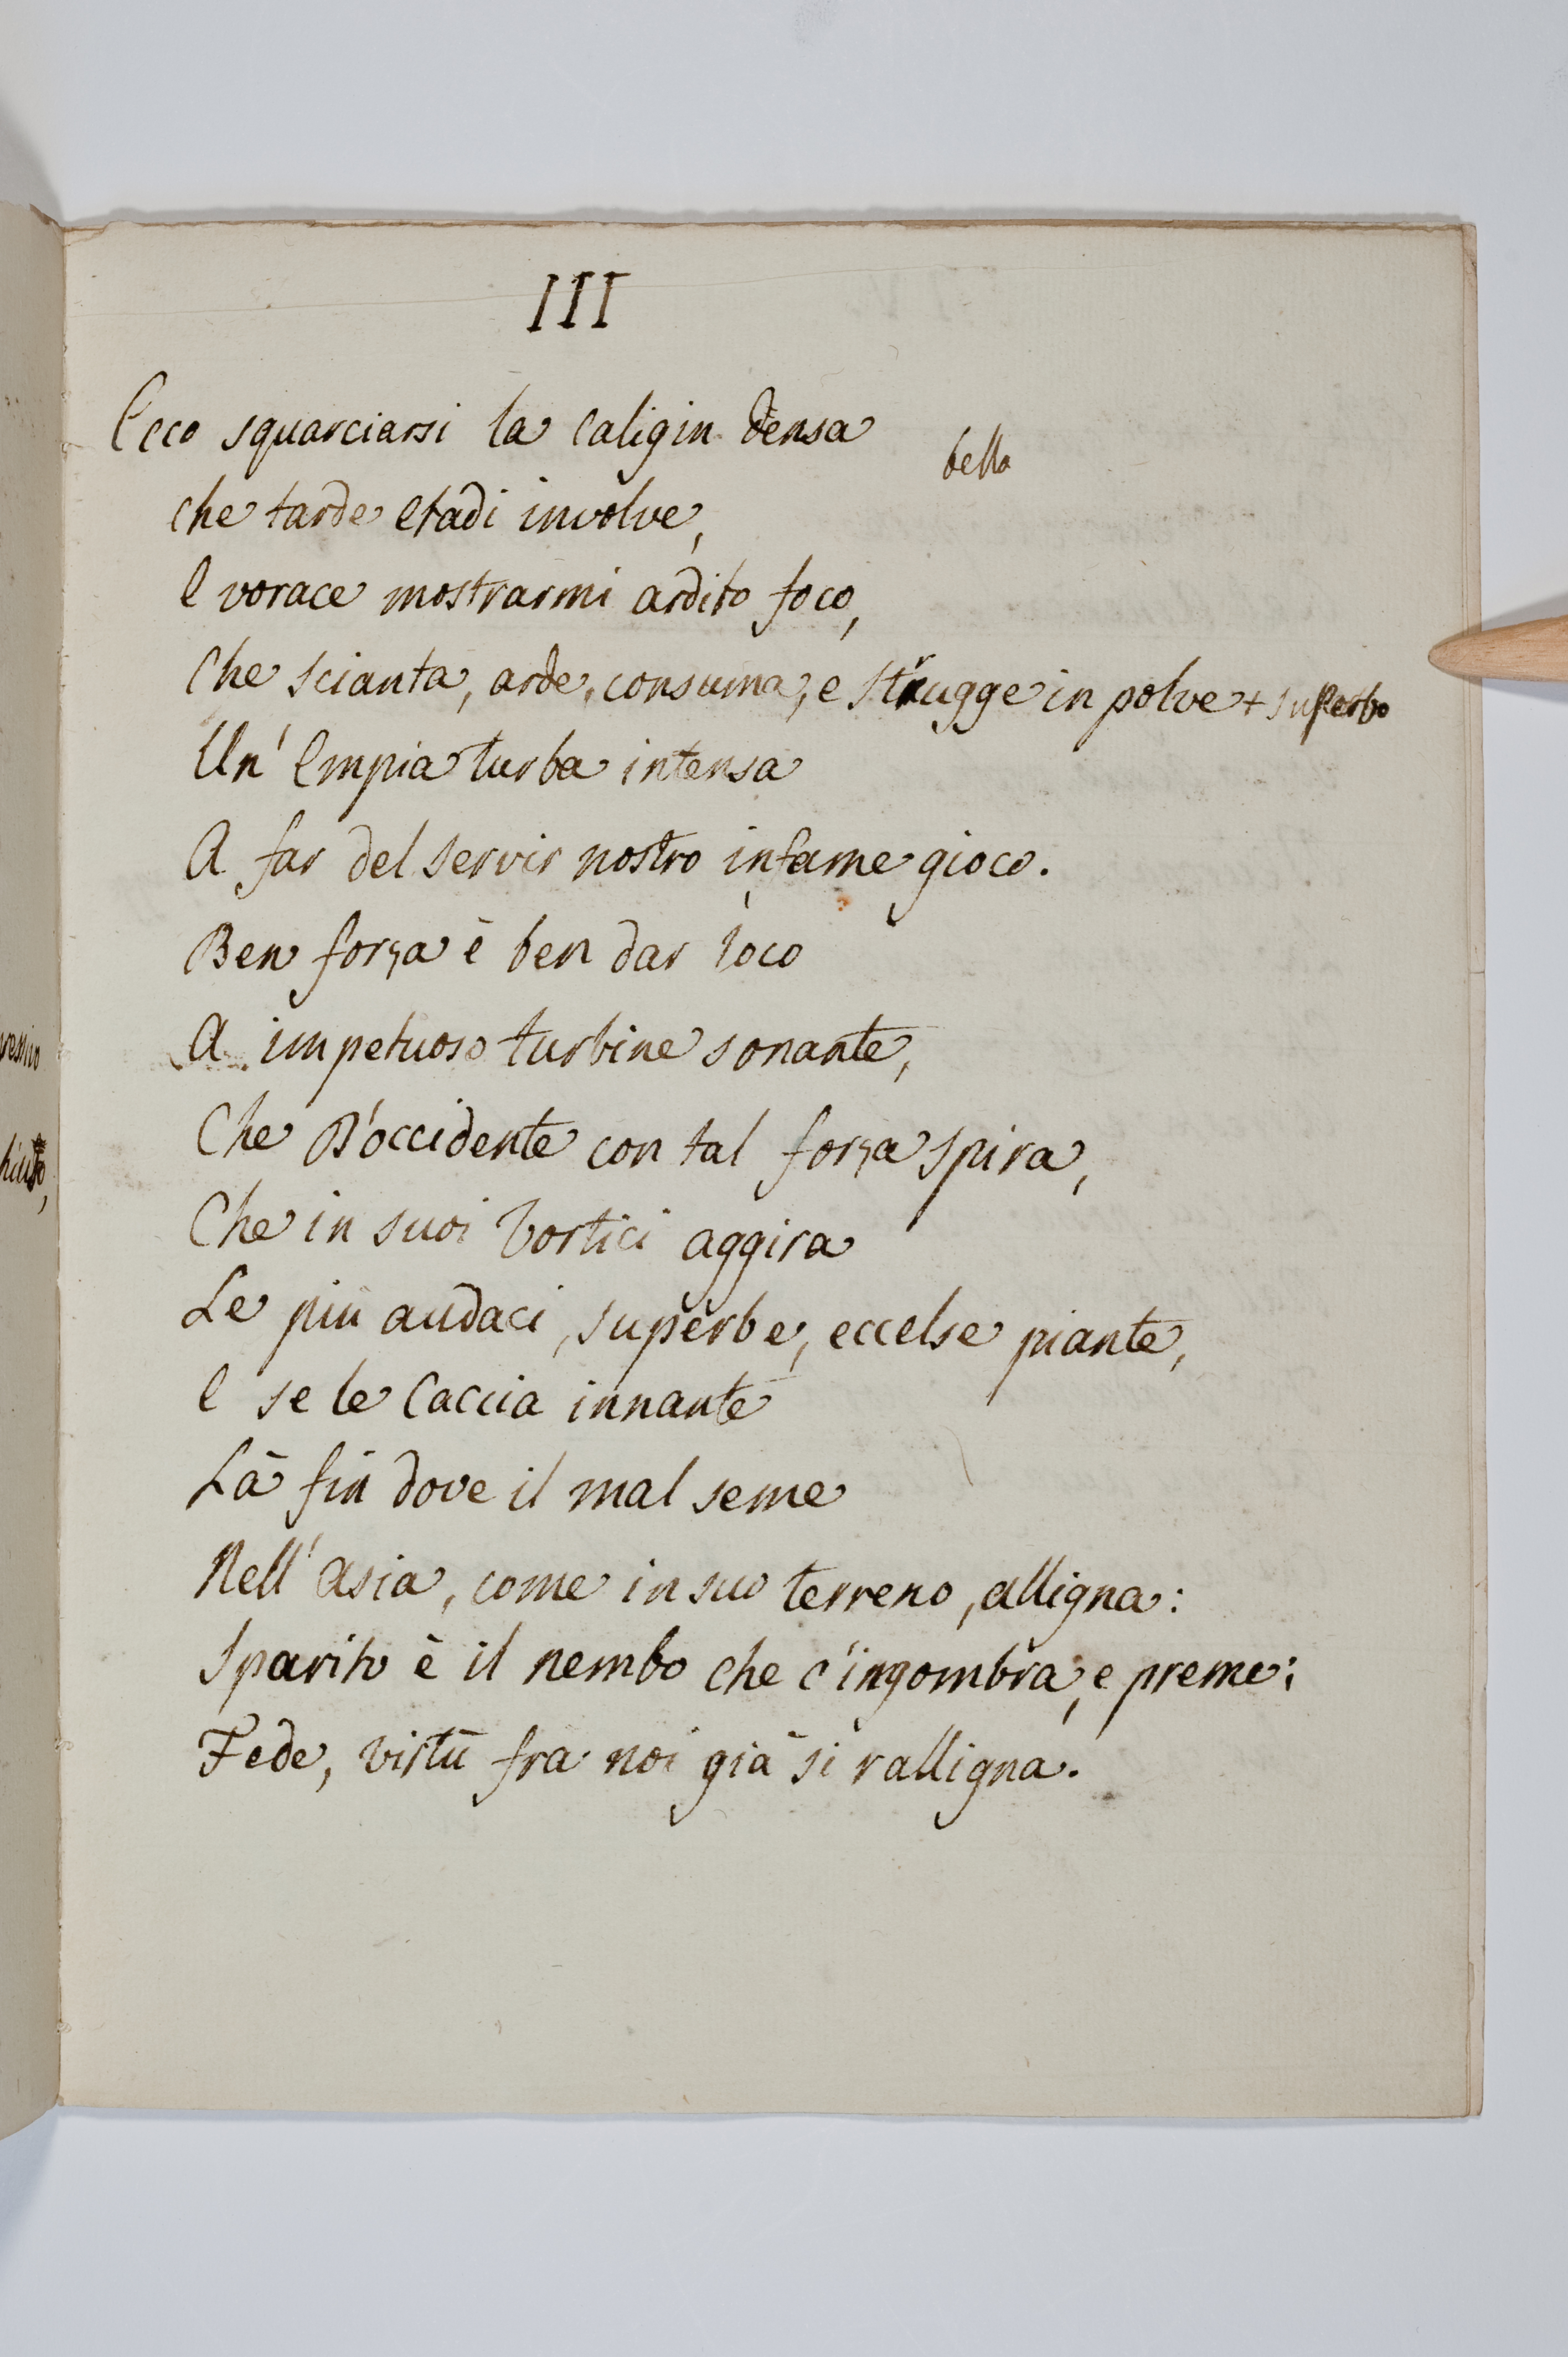 III
Ecco squarciarsi la Caligin densa
bella
che tarde etadi involve,
E vorace mostrarmi ardito foco,
Che scianta, arde, consuma, e strugge in polve + superbo
Un' Empia turba intensa
A far del servir nostro infame gioco.
Ben forza è ben dar loco
A impetuoso turbine sonante,
Che D'occidente con tal forza spira,
Che in suoi Vortici aggira
Le più audaci, superbe, eccelse piante,
E se le Caccia innante
Là fin dove il mal seme
Nell' Asia, come in suo terreno, alligna:
Sparito è il nembo che c'ingombra, e preme:
Fede, virtù fra noi già si ralligna.